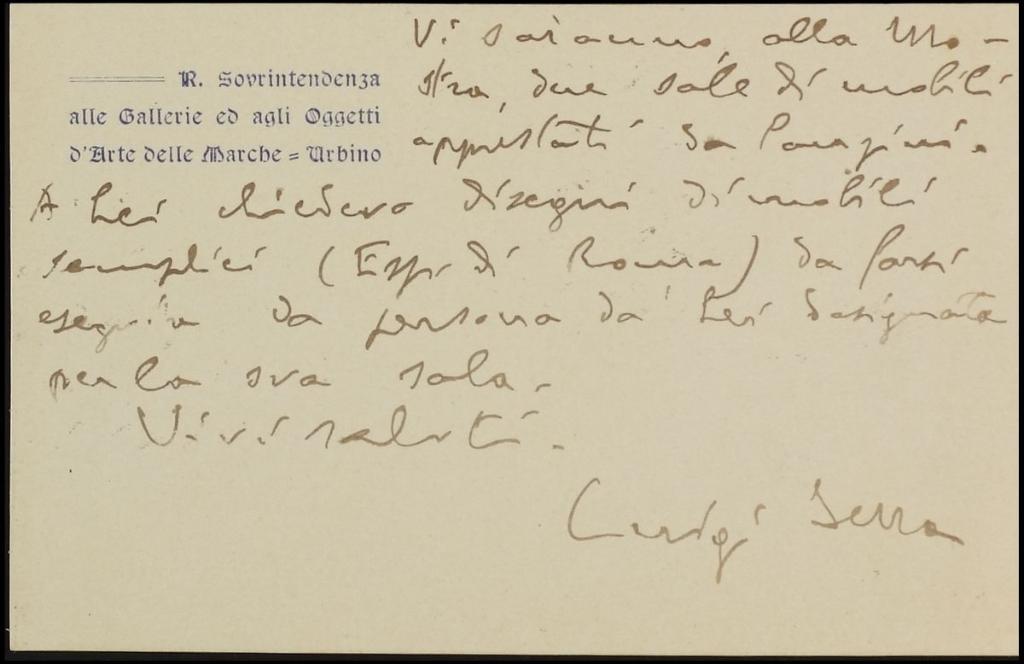 R. Sovrintendenza
alle Gallerie ed agli Oggetti
d'Arte delle Marche = Urbino
Vi saranno, alla Mo-
stra, due sale di mobili
apprestati da
A Lei chiedevo disegni di mobili
semplici (Esp. di Roma) da farsi
eseguire da persona da Lei designata
per la sua sala.
Vivi saluti.
Luigi Serra